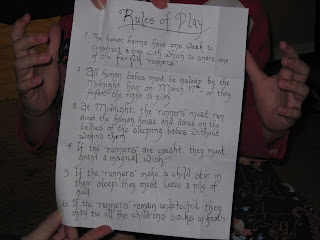 Rules of Play
1. The human bairns have one week to
construct a trap with which to snare one
of the fair folk "runners".
2. All human babes must be asleep by the
midnight hour on March 17th - or they
forfeit the right to play
3. At Midnight, the 'runners' must run
about the human house and dance on the
bellies of the sleeping babes without
waking them.
4. If the 'runners' are caught, they must
grant a magical wish.
5. If the 'runners' make a child stir in
their sleep they must leave a pile of
gold.
6. If the 'runners' remain undetected, they
may tie all the children's socks in knots.